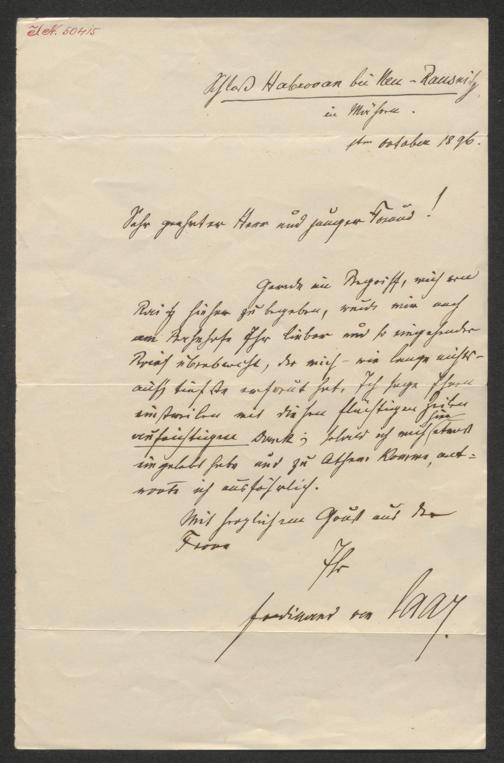 I.N. 50415
Schloß Habrovan bei Neu-Rausnitz
in Mähren.
1ten October 1896.
Sehr geehrter Herr und junger Freund!
Gerade im Begriff, mich von
Raitz hieher zu begeben, wurde mir noch
am Bahnhofe Ihr lieber und so eingehender
Brief überbracht, der mich - wie lange nichts -
aufs tiefste erfreut hat. Ich sage Ihnen
einstweilen mit diesen flüchtigen Zeilen
aufrichtigen Dank; sobald ich mich hier etwas
eingelebt habe und zu Athem komme, ant=
worte ich ausführlich.
Mit herzlichem Gruß aus der
Ferne
Ihr
Ferdinand von Saar.